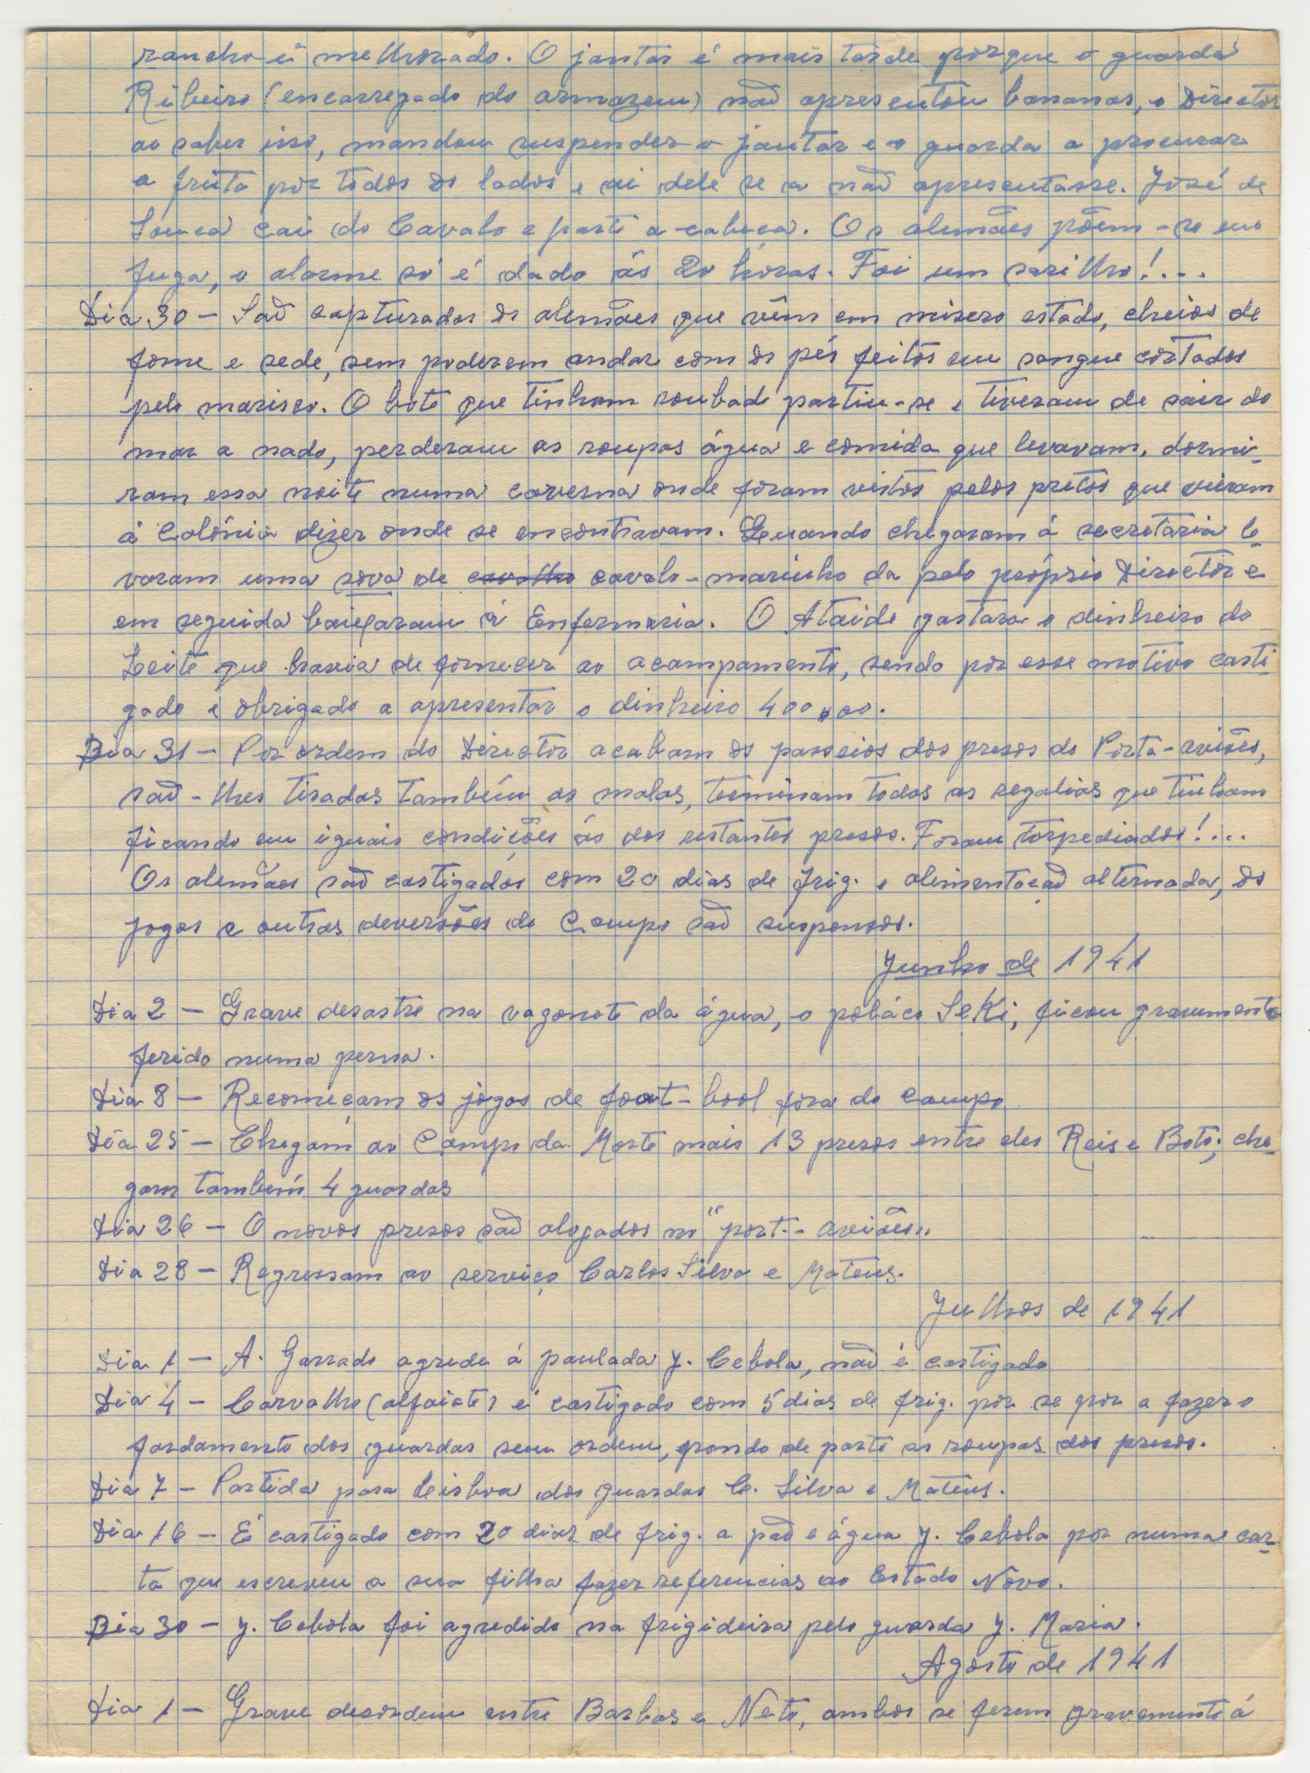 rancho é melhorado. O jantar é mais tarde porque o guarda
Ribeiro (encarregado do armazem) não apresentou bananas, o Director
ao saber isso, mandou suspender o jantar e o guarda a procurar
a fruta por todos os lados e ai dele se a não apresentasse. José de
Sousa cai do Cavalo e parte a cabeca. Os alemães põem-se em
fuga, o alarme só é dado ás 20 horas. Foi um sarilho!...
Dia 30 - São capturados os alemães que vêm em misero estado, cheios de
fome e sede, sem poderem andar com os pés feitos em sangue cortados
pelo marisco. O bote que tinham roubado partiu-se e tiveram de sair do
mar a nado, perderam as roupas água e comida que levavam, dormi-
ram essa noite numa caverna onde foram vistos pelos pretos que vieram
á Colónia dizer onde se encontravam. Quando chegaram á secretaria le-
varam uma sova de cavalho cavalo-marinho da pelo próprio Director e
em seguida baixaram á Enfermaria. O Ataide gastara o dinheiro do
Leite que havia de fornecer ao acampamento, sendo por esse motivo casti-
gado e obrigado a apresentar o dinheiro 400,00.
Dia 31 - Por ordem do Director acabam os passeios dos presos do Porta-aviões,
são-lhes tiradas também as malas, terminam todas as regalias que tinham
ficando em iguais condições ás dos restantes presos. Foram torpediados!...
Os alemães são castigados com 20 dias de frig. e alimentação alternada, os
jogos e outras deversões do Campo são suspensos.
Junho de 1941
Dia 2 - Grave desastre na vagonete da água, o poláco Seki, ficou gravemente
ferido numa perna.
Dia 8 - Recomeçam os jogos de foot-bool fora do campo
Dia 25 - Chegam ao Campo da Morte mais 13 presos entre eles Reis e Boto; che-
gam também 4 guardas
Dia 26 - O novos presos são alogados no "port-aviões"
Dia 28 - Regressam ao serviço Carlos Silva e Mateus.
Julhos de 1941
Dia 1 - A. Garrado agrede á paulada J. Cebola, não é castigado
Dia 4 - Carvalho (alfaiate) é castigado com 5 dias de frig. por se por a fazer o
fardamento dos guardas sem ordem, pondo de parte as roupas dos presos.
Dia 7 - Partida para Leisboa dos guardas C. Silva e Mateus.
Dia 16 - É castigado com 20 dias de frig. a pão e água J. Cebola por numa car-
ta que escreveu a sua filha fazer referencias ao Estado Novo.
Dia 30 - J. Cebola foi agredido na frigideira pelo guarda J. Maria.
Agosto de 1941
Dia 1 - Grave desordem entre Barbas e Neto, ambos se ferem gravemente á